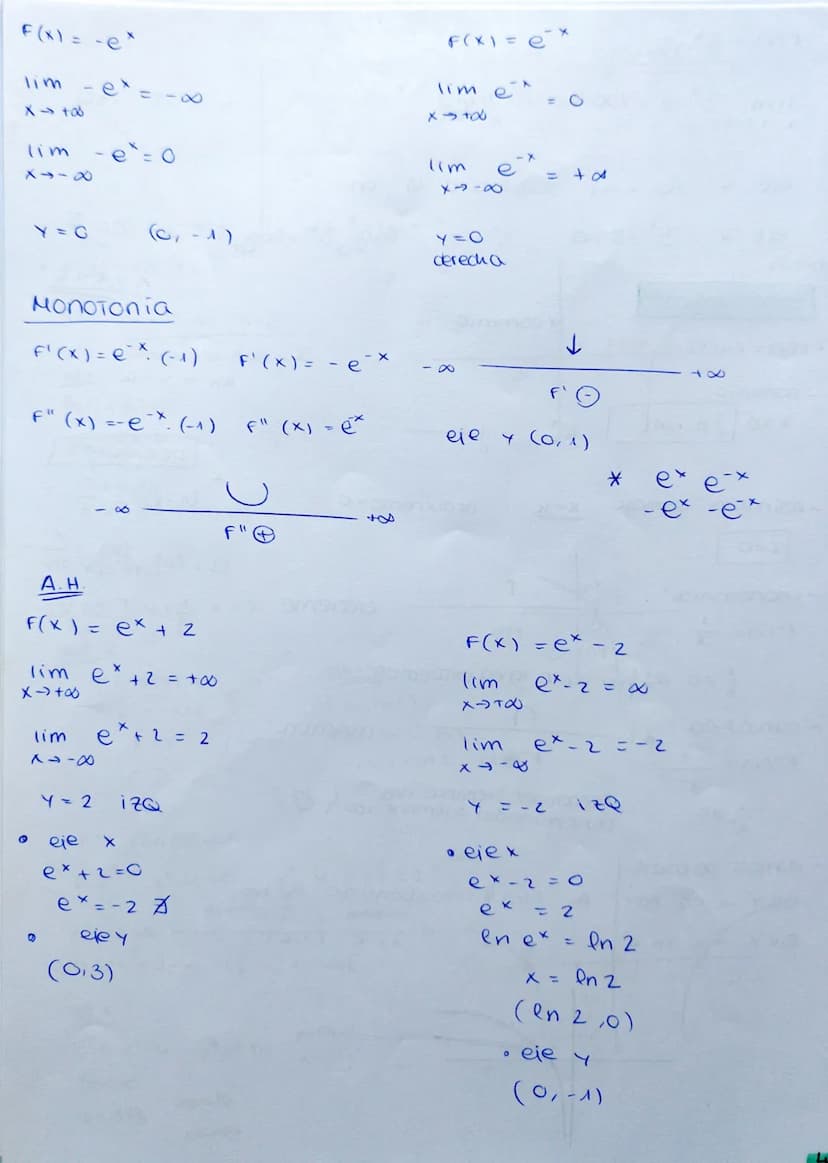 F(x) = -e^x
lim -e^x = -∞
x→+∞
lim -e^x = 0
x→-∞
y = 0 (0, -1)
F(x) = e^-x
lim e^-x = 0
x→+∞
lim e^-x = +∞
x→-∞
y = 0
derecha
Monotonía
F'(x) = e^-x · (-1) F'(x) = -e^-x
-∞ ↓ +∞
F' ⊖
F''(x) = -e^-x · (-1) F''(x) = e^-x
eje y (0,1)
* e^x e^-x
-e^x -e^-x
-∞ ∪ +∞
F'' ⊕
A.H.
F(x) = e^x + 2
lim e^x + 2 = +∞
x→+∞
lim e^x + 2 = 2
x→-∞
y = 2 izQ
• eje x
e^x + 2 = 0
e^x = -2 ∄
• eje y
(0,3)
F(x) = e^x - 2
lim e^x - 2 = ∞
x→+∞
lim e^x - 2 = -2
x→-∞
y = -2 izQ
• eje x
e^x - 2 = 0
e^x = 2
ln e^x = ln 2
x = ln 2
(ln 2, 0)
• eje y
(0, -1)